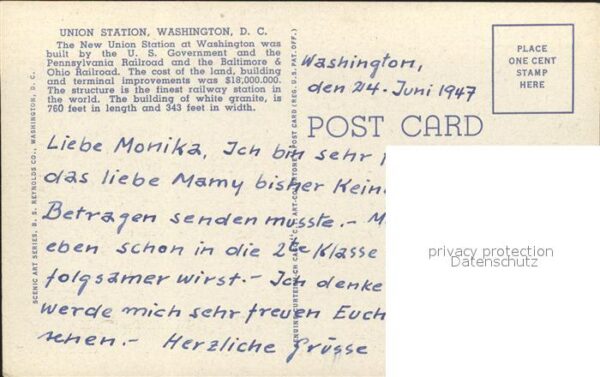 UNION STATION, WASHINGTON, D. C.
The New Union Station at Washington was
built by the U. S. Government and the
Pennsylvania Railroad and the Baltimore &
Ohio Railroad. The cost of the land, building
and terminal improvements was $18,000,000.
The structure is the finest railway station in
the world. The building of white granite, is
760 feet in length and 343 feet in width.
SCENIC ART SERIES, B. S. REYNOLDS CO., WASHINGTON, D. C.
Washington,
den 24. Juni 1947
PLACE
ONE CENT
STAMP
HERE
POST CARD
Liebe Monika, Ich bin sehr
das liebe Mamy bisher Kein
Betragen senden musste.-
eben schon in die 2te Klasse
folgsamer wirst.- Ich denke
werde mich sehr freuen Euch
sehen.- Herzliche Grüsse
privacy protection
Datenschutz